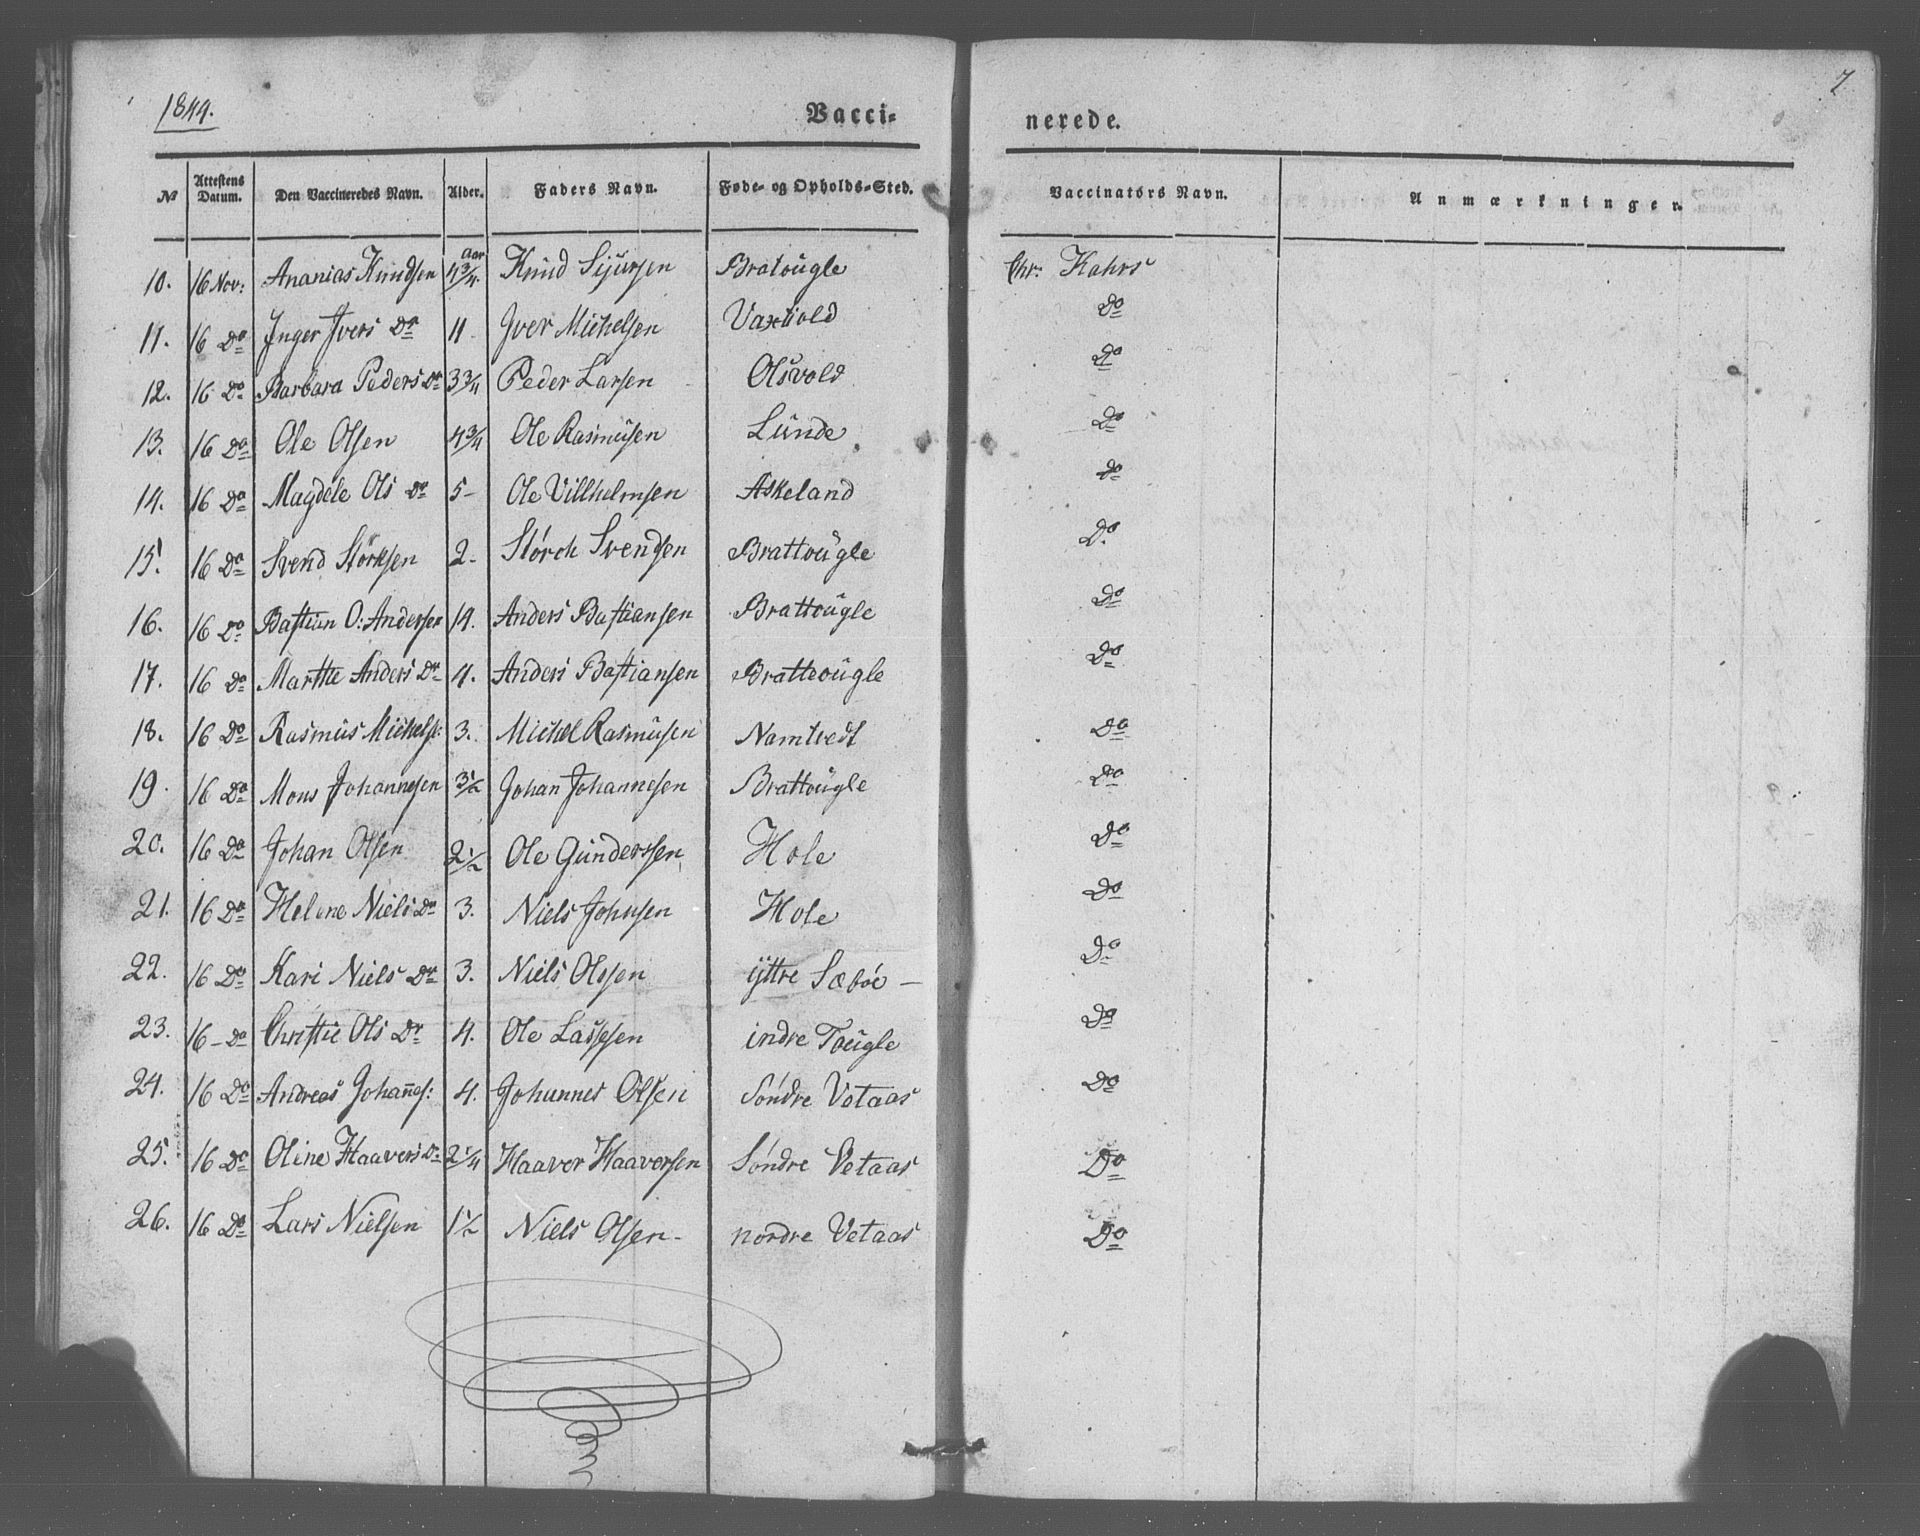 1844.
7
Vacci-
nerede.
No Attestens Datum. Den Vaccineredes Navn. Alder. Faders Navn. Føde- og Opholds-Sted. Vaccinators Navn. Anmærkninger.
10. 16 Nov: Ananias Knudsen 4 3/4 Aar Knud Sjursen Bratougle Chr: Kahrs
11. 16 Do Inger Ivers Dr 11 Iver Michelsen Vaxvold Do
12. 16 Do Barbara Peders Dr 3 3/4 Peder Larsen Olsvold Do
13. 16 Do Ole Olsen 4 3/4 Ole Rasmusen Lunde Do
14. 16 Do Magdele Ols Dr 5- Ole Villhelmsen Askeland do
15. 16 Do Svend Störksen 2. Störch Svendsen Brattougle Do
16. 16 Do Bastian O: Andersen 14. Anders Bastiansen Brattougle Do
17. 16 Do Marthe Anders Dr 4. Anders Bastiansen Bratteougle Do
18. 16 Do Rasmus Michels: 3. Michel Rasmusen Namtvedt Do
19. 16 Do Mons Johannesen 3 1/2 Johan Johannesen Brattougle Do
20. 16 Do Johan Olsen 2 1/2 Ole Gunderssen Hole Do
21. 16 Do Helene Niels Dr 3. Niels Johnsen Hole Do
22. 16 Do Kari Niels Dr 3. Niels Olssen ÿttre Sæbøe - Do
23. 16 - Do Christie Ols Dr 4. Ole Lassesen indre Tougle Do
24. 16 Do Andreas Johan̄s: 4. Johannes Olsen Søndre Vetaas Do
25. 16 Do Oline Haavers Dr 2 1/4 Haaver Haaversen Søndre Vetaas Do
26. 16 Do Lars Nielsen 1 1/2 Niels Olsen - nordre Vetaas Do